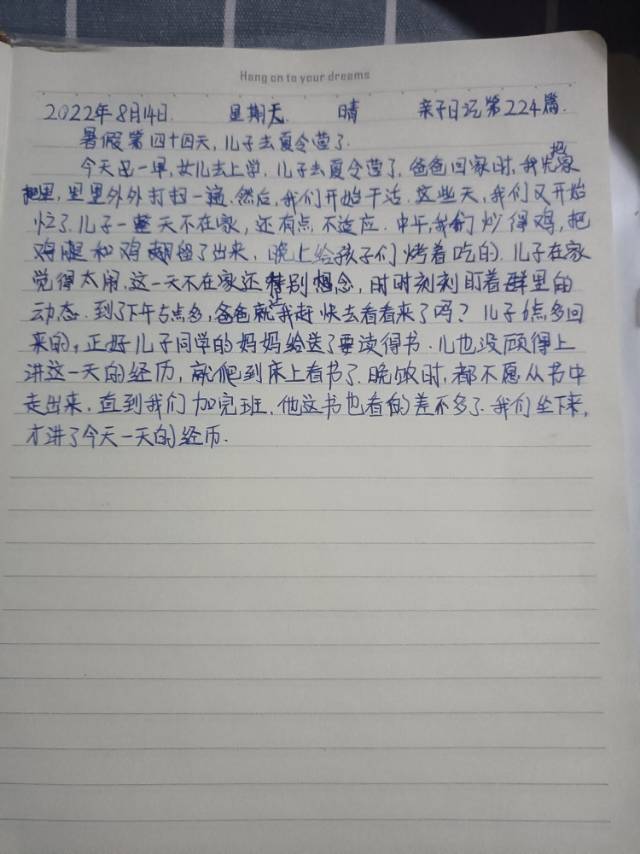 Hang on to your dreams
2022年8月14日. 星期天 晴 亲子日记第224篇.
暑假第四十四天,儿子去夏令营了.
今天早一早,女儿去上学.儿子去夏令营了.爸爸回家时,我先把家
里,里里外外打扫一遍.然后,我们开始干活.这些天,我们又开始
忙了.儿子一整天不在家,还有点不适应.中午,我们炒得鸡,把
鸡腿和鸡翅留了出来,晚上给孩子们烤着吃的.儿子在家
觉得太闹.这一天不在家还特别想念,时时刻刻盯着群里的
动态.到了下午5点多,爸爸就让我赶快去看看来了吗?儿子6点多回
来的,正好儿子同学的妈妈给送了要读得书.儿也没顾得上
讲这一天的经历,就爬到床上看书了.晚饭时,都不愿从书中
走出来.直到我们加完班.他这书也看的差不多了.我们坐下来,
才讲了今天一天的经历.